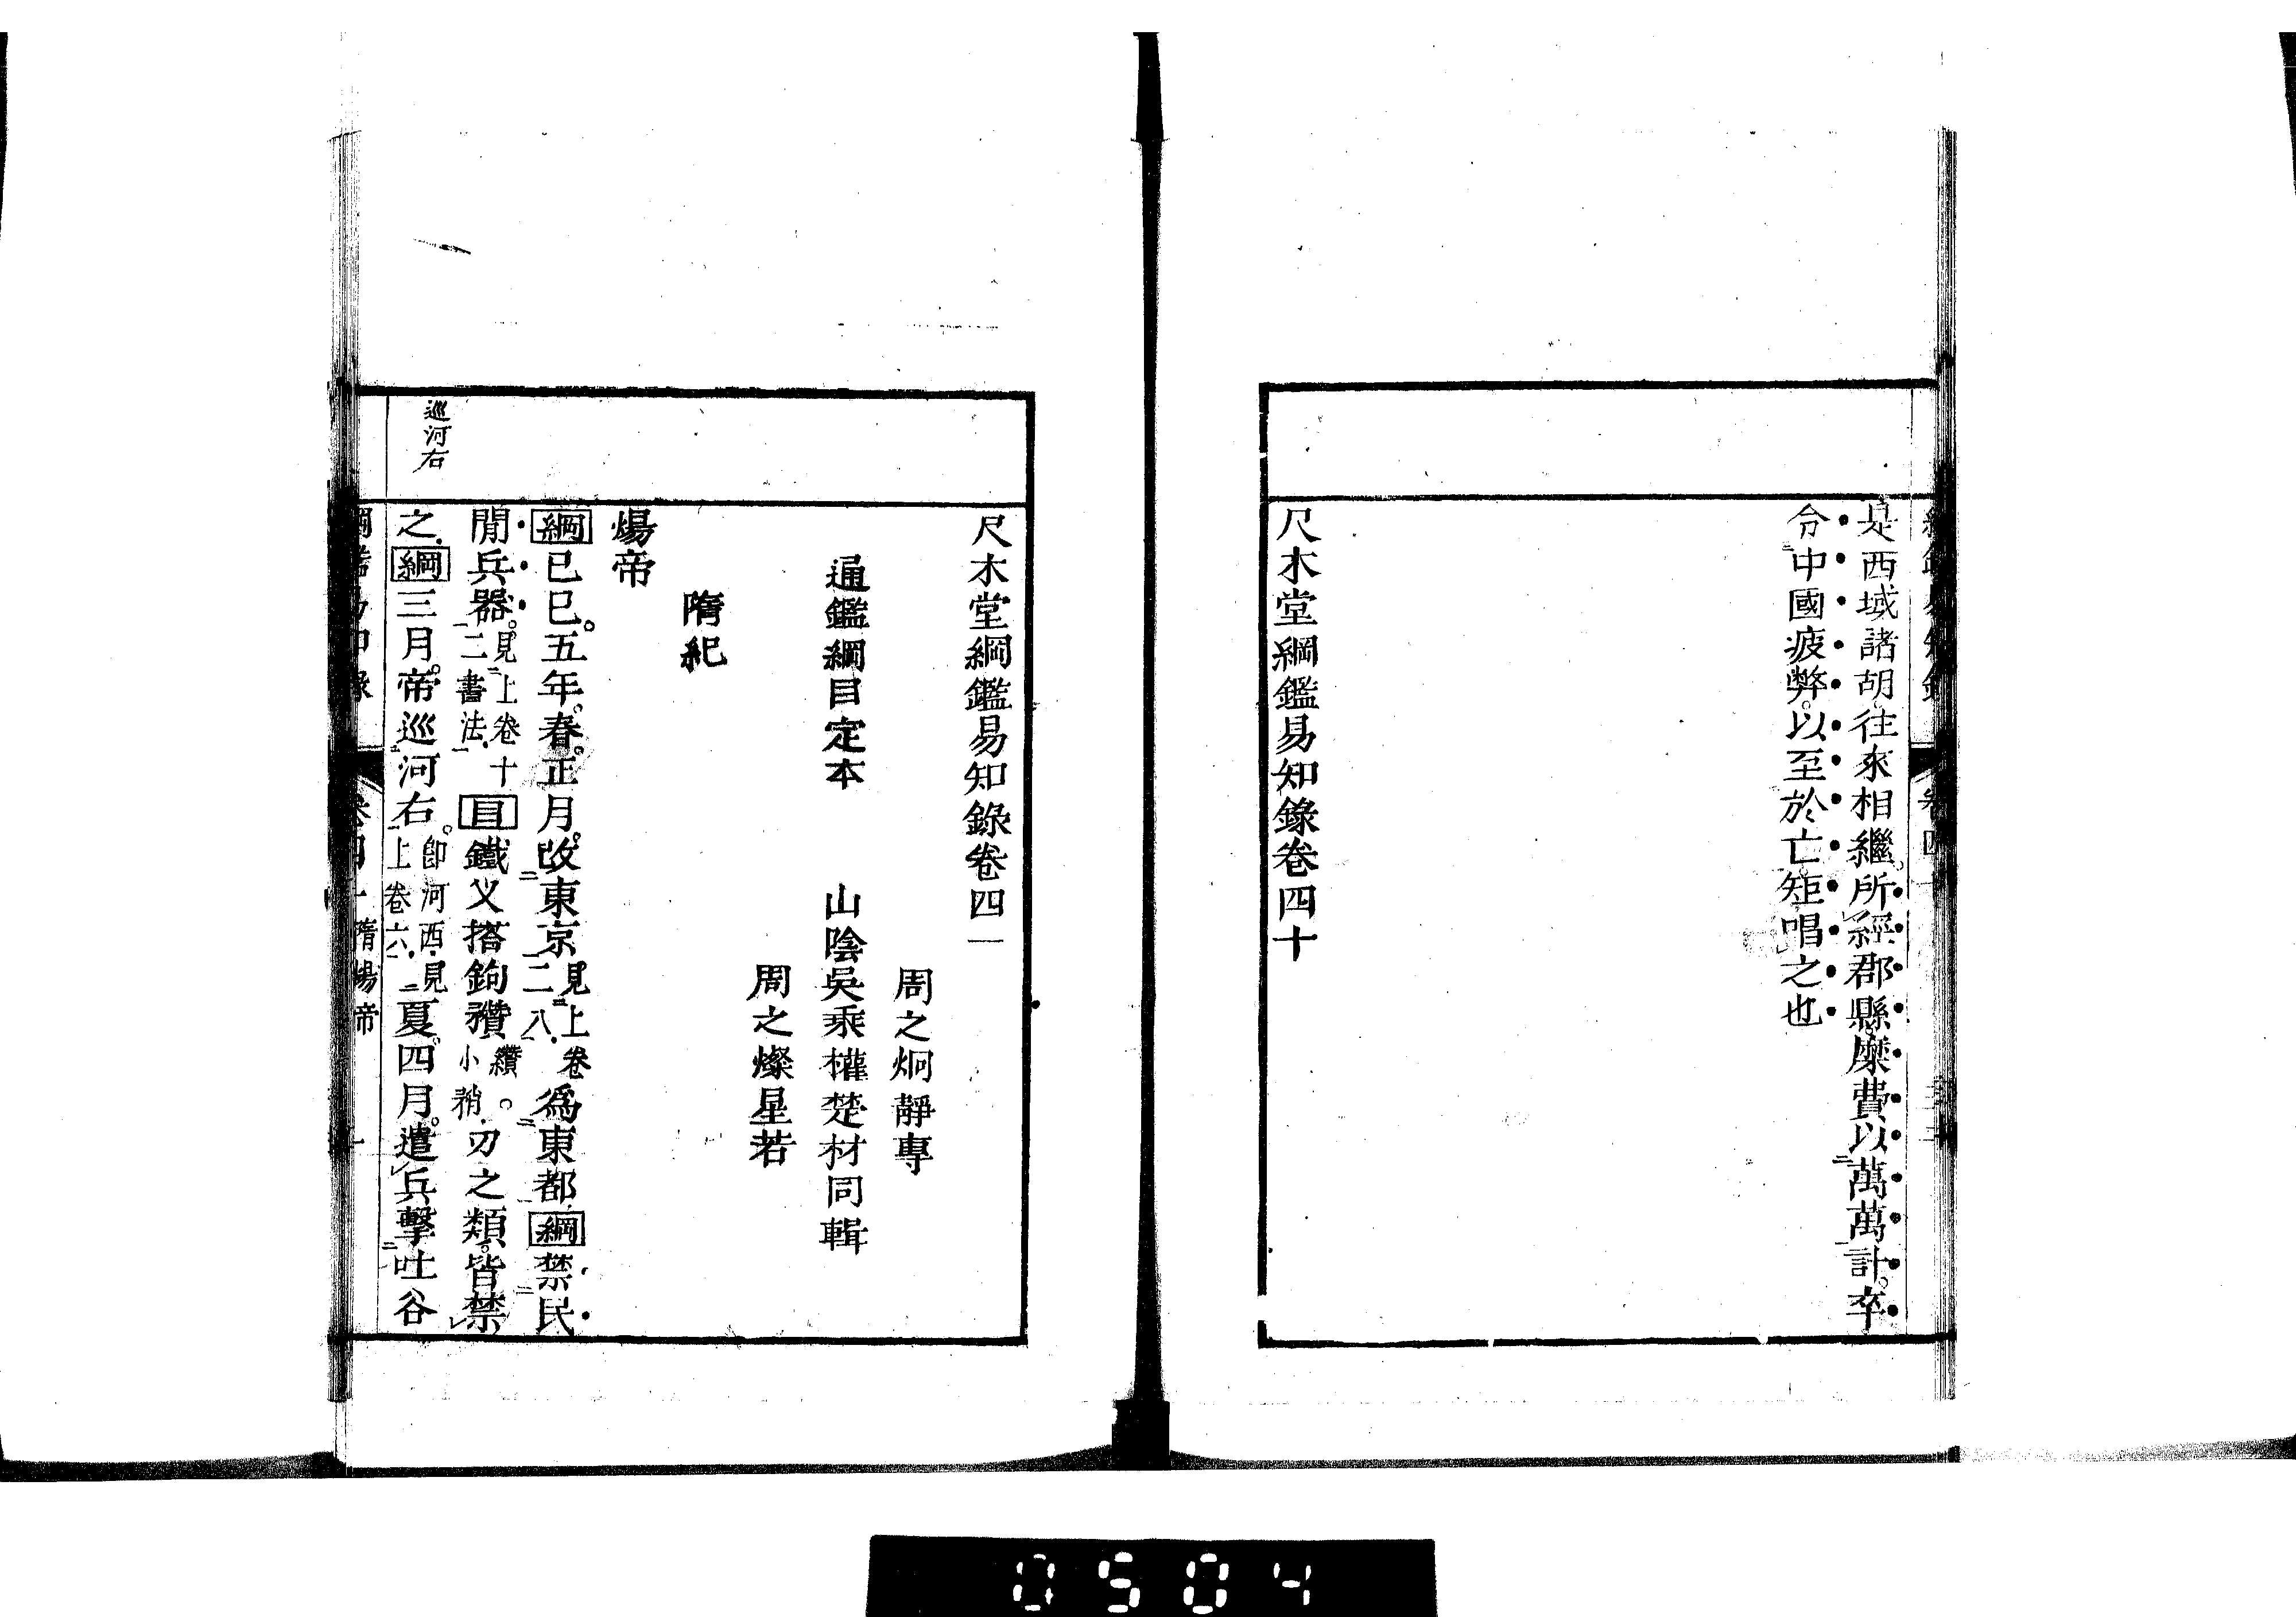 是西域諸胡往來相繼。所經郡縣。糜費以萬萬計。卒
令中國疲弊。以至於亡。矩唱之也
尺木堂綱鑑易知錄卷四十
尺木堂綱鑑易知錄卷四一
周之炯靜專
通鑑綱目定本　山陰吳乘權楚材同輯
周之燦星若
隋紀
煬帝
綱已巳。五年。春。正月。改東京見上卷二八。爲東都。綱禁民
閒兵器。見上卷十二書法。目鐵叉搭鉤穳纘。小矟。刃之類。皆禁
之。綱三月。帝巡河右。卽河西。見上卷六。夏四月。遣兵擊吐谷
巡河右
隋煬帝
0504